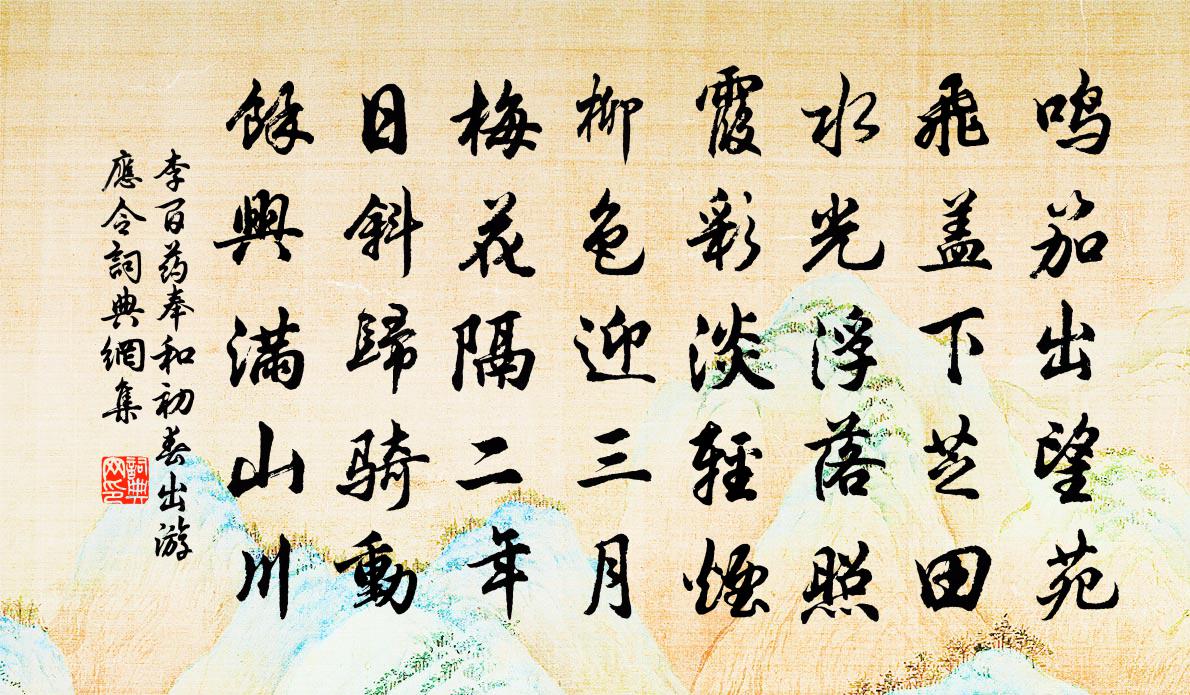 鸣笳出望苑
飛盖下芝田
水光浮落照
霞彩淡輕煙
柳色迎三月
梅花隔二年
日斜歸騎動
餘興滿山川
李百药奉和初春出游
應令詞典網集
詞典網印